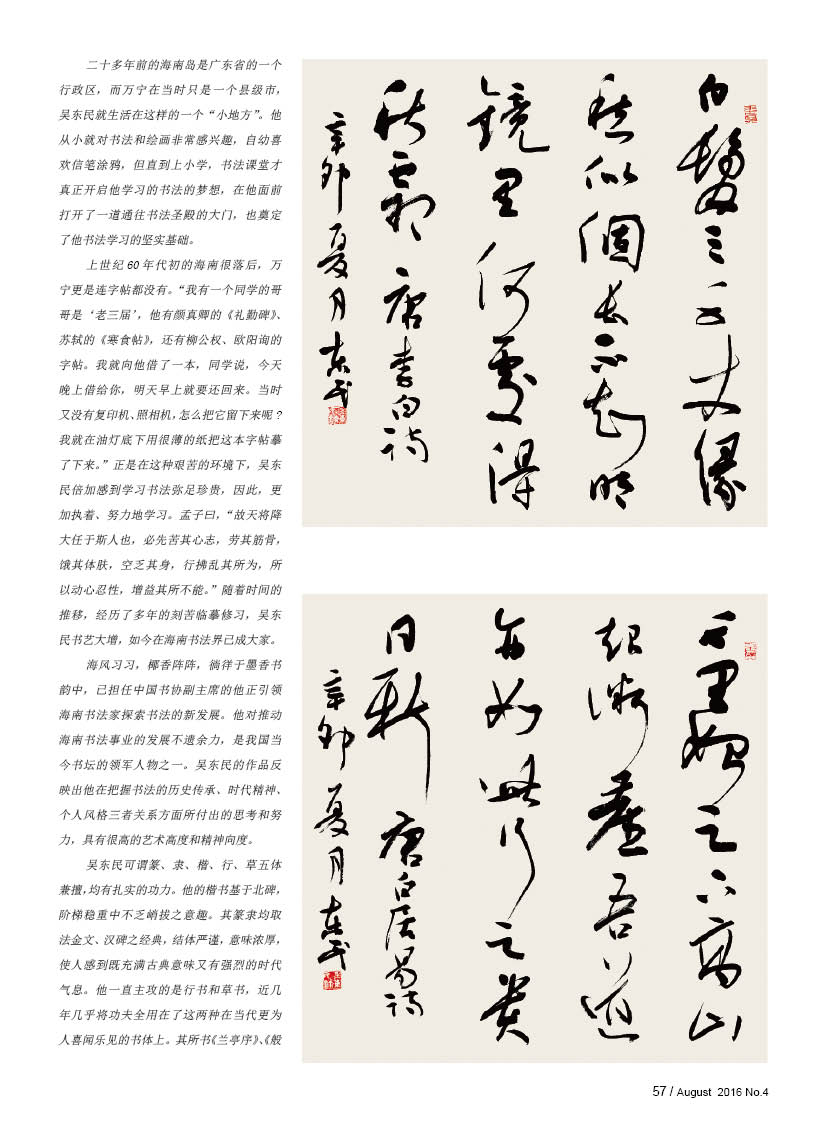 二十多年前的海南岛是广东省的一个
行政区，而万宁在当时只是一个县级市，
吴东民就生活在这样的一个“小地方”。他
从小就对书法和绘画非常感兴趣，自幼喜
欢信笔涂鸦，但直到上小学，书法课堂才
真正开启他学习的书法的梦想，在他面前
打开了一道通往书法圣殿的大门，也奠定
了他书法学习的坚实基础。
上世纪 60 年代初的海南很落后，万
宁更是连字帖都没有。“我有一个同学的哥
哥是‘老三届’，他有颜真卿的《礼勤碑》、
苏轼的《寒食帖》，还有柳公权、欧阳询的
字帖。我就向他借了一本，同学说，今天
晚上借给你，明天早上就要还回来。当时
又没有复印机、照相机，怎么把它留下来呢？
我就在油灯底下用很薄的纸把这本字帖摹
了下来。”正是在这种艰苦的环境下，吴东
民倍加感到学习书法弥足珍贵，因此，更
加执着、努力地学习。孟子曰，“故天将降
大任于斯人也，必先苦其心志，劳其筋骨，
饿其体肤，空乏其身，行拂乱其所为，所
以动心忍性，增益其所不能。”随着时间的
推移，经历了多年的刻苦临摹修习，吴东
民书艺大增，如今在海南书法界已成大家。
海风习习，椰香阵阵，徜徉于墨香书
韵中，已担任中国书协副主席的他正引领
海南书法家探索书法的新发展。他对推动
海南书法事业的发展不遗余力，是我国当
今书坛的领军人物之一。吴东民的作品反
映出他在把握书法的历史传承、时代精神、
个人风格三者关系方面所付出的思考和努
力，具有很高的艺术高度和精神向度。
吴东民可谓篆、隶、楷、行、草五体
兼擅，均有扎实的功力。他的楷书基于北碑，
阶梯稳重中不乏峭拔之意趣。其篆隶均取
法金文、汉碑之经典，结体严谨，意味浓厚，
使人感到既充满古典意味又有强烈的时代
气息。他一直主攻的是行书和草书，近几
年几乎将功夫全用在了这两种在当代更为
人喜闻乐见的书体上。其所书《兰亭序》、《般
白髮三千丈緣
愁似個長不知明
鏡裏何處得
秋霜 唐李白詩
辛卯夏月東民
千里始足下高山
起微塵吾道
亦如此行之貴
日新 唐白居易詩
辛卯夏月東民
57 / August 2016 No.4